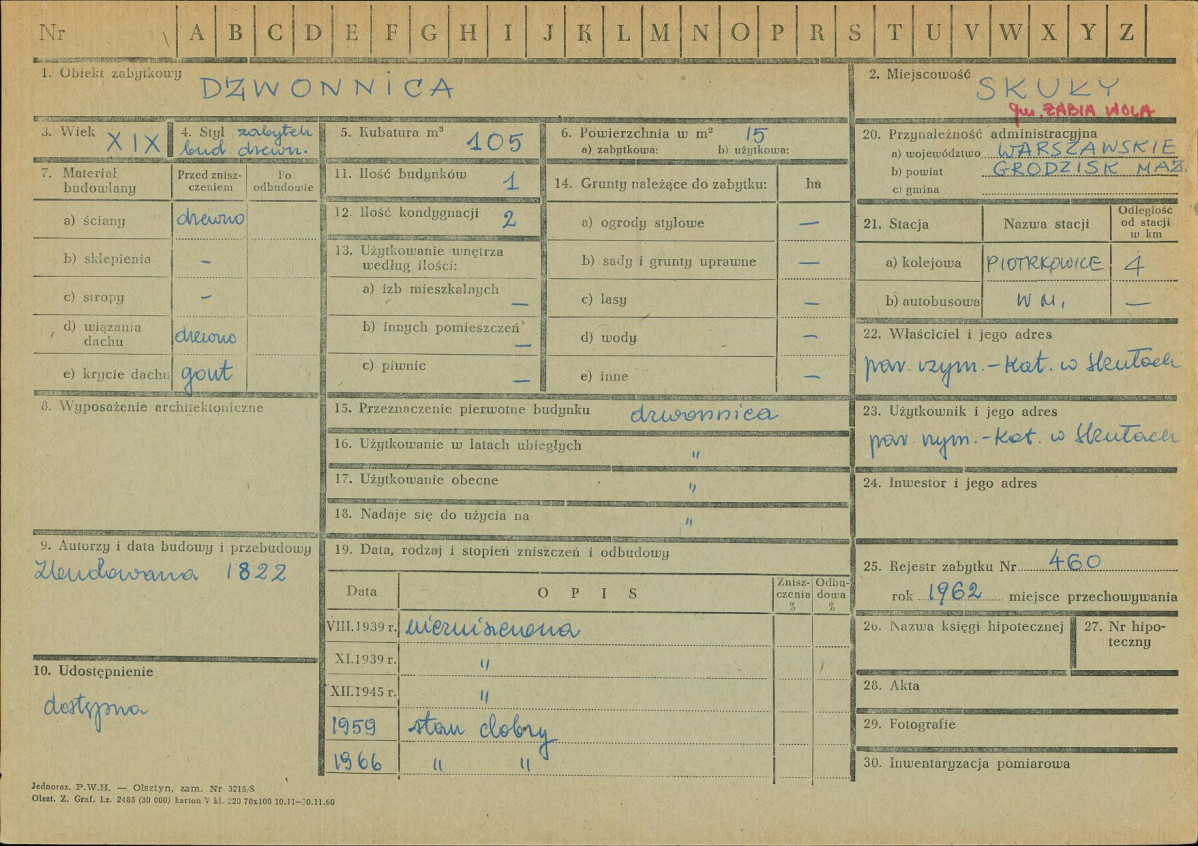 Nr A B C D E F G H I J K L M N O P R S T U V W X Y Z
1. Obiekt zabytkowy DZWONNICA
2. Miejscowość SKUŁY
gm. ŻABIA WOLA
3. Wiek XIX
4. Styl zabytek
bud. drewn.
5. Kubatura m³ 105
6. Powierzchnia w m² 15
a) zabytkowa: b) użytkowa:
20. Przynależność administracyjna
a) województwo WARSZAWSKIE
b) powiat GRODZISK MAZ.
c) gmina
7. Materiał
budowlany
Przed znisz-
czeniem
Po
odbudowie
a) ściany drewno
b) sklepienia –
c) stropy –
d) wiązania
dachu drewno
e) krycie dachu gont
11. Ilość budynków 1
12. Ilość kondygnacji 2
13. Użytkowanie wnętrza
według ilości:
a) izb mieszkalnych —
b) innych pomieszczeń —
c) piwnic —
14. Grunty należące do zabytku: ha
a) ogrody stylowe —
b) sady i grunty uprawne —
c) lasy —
d) wody —
e) inne —
21. Stacja Nazwa stacji
Odległość
od stacji
w km
a) kolejowa PIOTRKOWICE 4
b) autobusowa W M. —
22. Właściciel i jego adres
par. rzym.-Kat. w Skułach
8. Wyposażenie architektoniczne
15. Przeznaczenie pierwotne budynku dzwonnica
16. Użytkowanie w latach ubiegłych "
17. Użytkowanie obecne "
18. Nadaje się do użycia na "
23. Użytkownik i jego adres
par. rzym.-Kat. w Skułach
24. Inwestor i jego adres
9. Autorzy i data budowy i przebudowy
Zbudowana 1822
10. Udostępnienie
dostępna
19. Data, rodzaj i stopień zniszczeń i odbudowy
Data OPIS
Znisz-
czenia
%
Odbu-
dowa
%
VIII.1939 r. niezniszczona
XI.1939 r. "
XII.1945 r. "
1959 stan dobry
1966 " "
25. Rejestr zabytku Nr 460
rok 1962 miejsce przechowywania
26. Nazwa księgi hipotecznej
27. Nr hipo-
teczny
28. Akta
29. Fotografie
30. Inwentaryzacja pomiarowa
Jednoraz. P.W.H. — Olsztyn, zam. Nr 3215/S
Olszt. Z. Graf. l.z. 2485 (30 000) karton V kl. 220 70x100 10.11—30.11.60